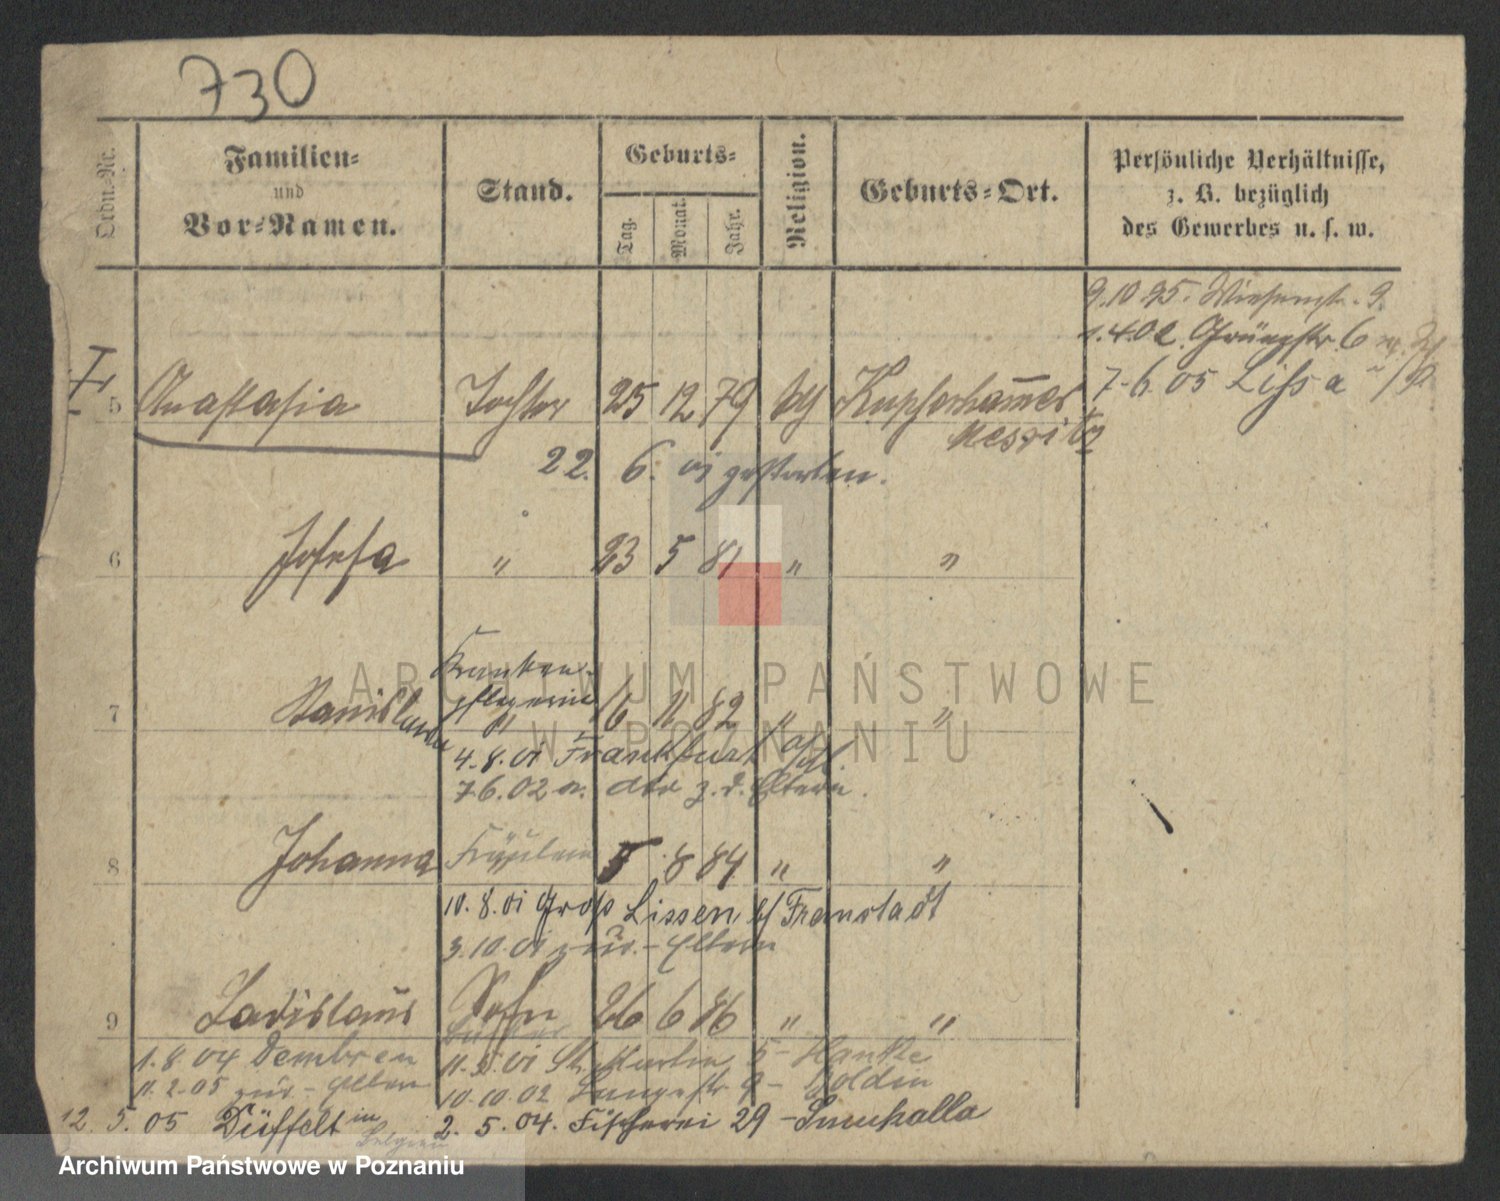 730
Ordn.-Nr.
Familien-
und
Vor-Namen.
Stand.
Geburts-
Tag.
Monat.
Jahr.
Religion.
Geburts-Ort.
Persönliche Verhältnisse,
z. B. bezüglich
des Gewerbes u. s. w.
9.10.95. Wiesenstr. 9.
1.4.02. Grünestr. 6
7.6.05 Lissa i/P.
5 Anastasia Tochter 25 12 79 kth Kupferhammer
Meseritz
22. 6. 01 gestorben.
6 Josefa " 23 5 81 " "
Kranken-
pflegerin
7 Stanislawa " 16 11 82 " "
4.8.01 Frankfurt a/O.
7.6.02 v. dto z. d. Eltern.
8 Johanna Fräulein 5 8 84 " "
10.8.01 Gross Lissen b/ Fraustadt
3.10.01 zur. - Eltern
9 Ladislaus Sohn 26 6 86 " "
1.8.04 Dembsen 11.5.01 St. Martin 5 - Hanke
11.2.05 zur. - Eltern 10.10.02 Langestr. 9 - Boldin
12. 5. 05 Düffelt in Belgien 2. 5. 04. Fischerei 29 - Smukalla
ARCHIWUM PAŃSTWOWE
W POZNANIU
Archiwum Państwowe w Poznaniu